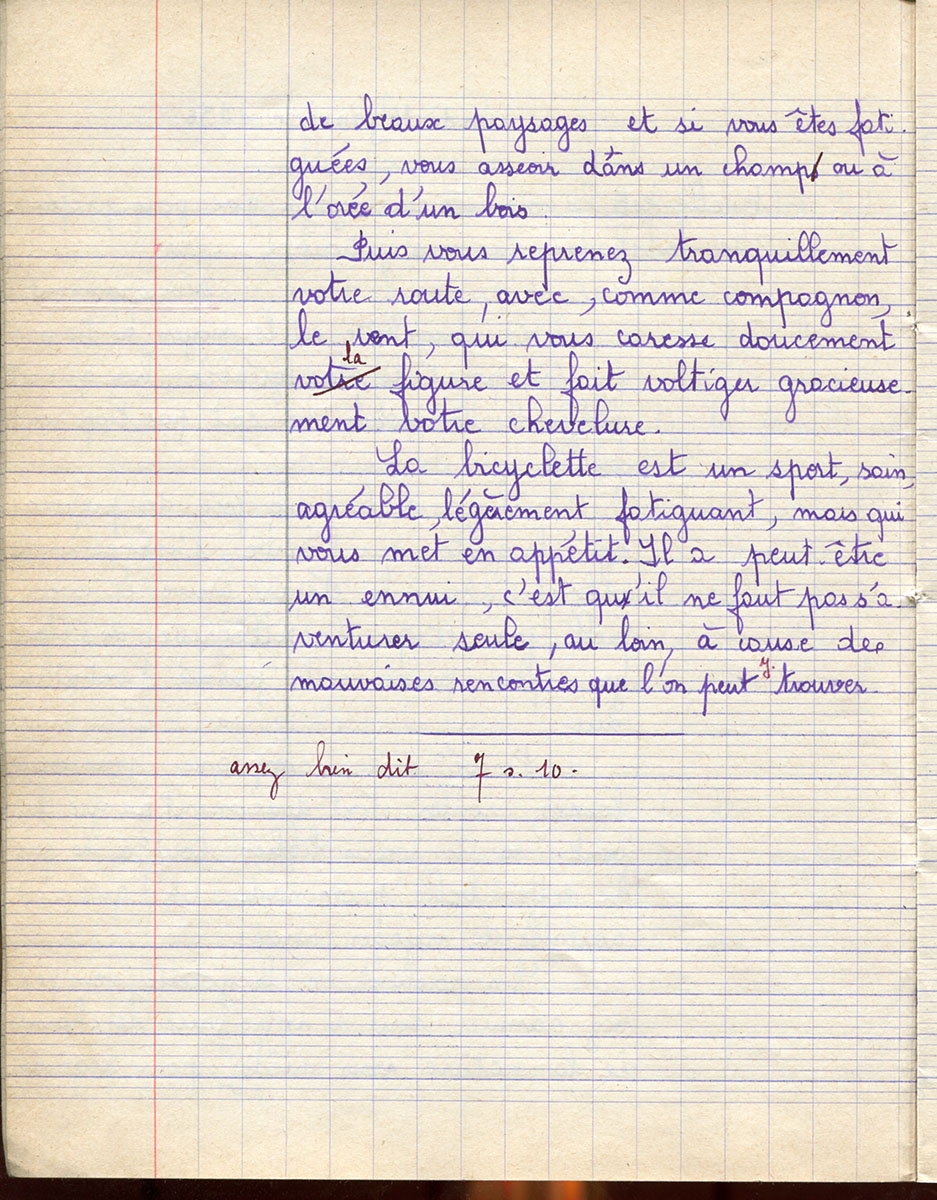 de beaux paysages et si vous êtes fati-
guées, vous asseoir dans un champ ou à
l'orée d'un bois.
Puis vous reprenez tranquillement
votre route, avec, comme compagnon,
le vent, qui vous caresse doucement
la
votre figure et fait voltiger gracieuse-
ment votre chevelure.
La bicyclette est un sport, sain,
agréable, légèrement fatiguant, mais qui
vous met en appétit. Il a peut-être
un ennui, c'est qu'il ne faut pas s'a-
venturer seule, au loin, à cause des
mauvaises rencontres que l'on peut y trouver.
assez bien dit 7 s. 10.